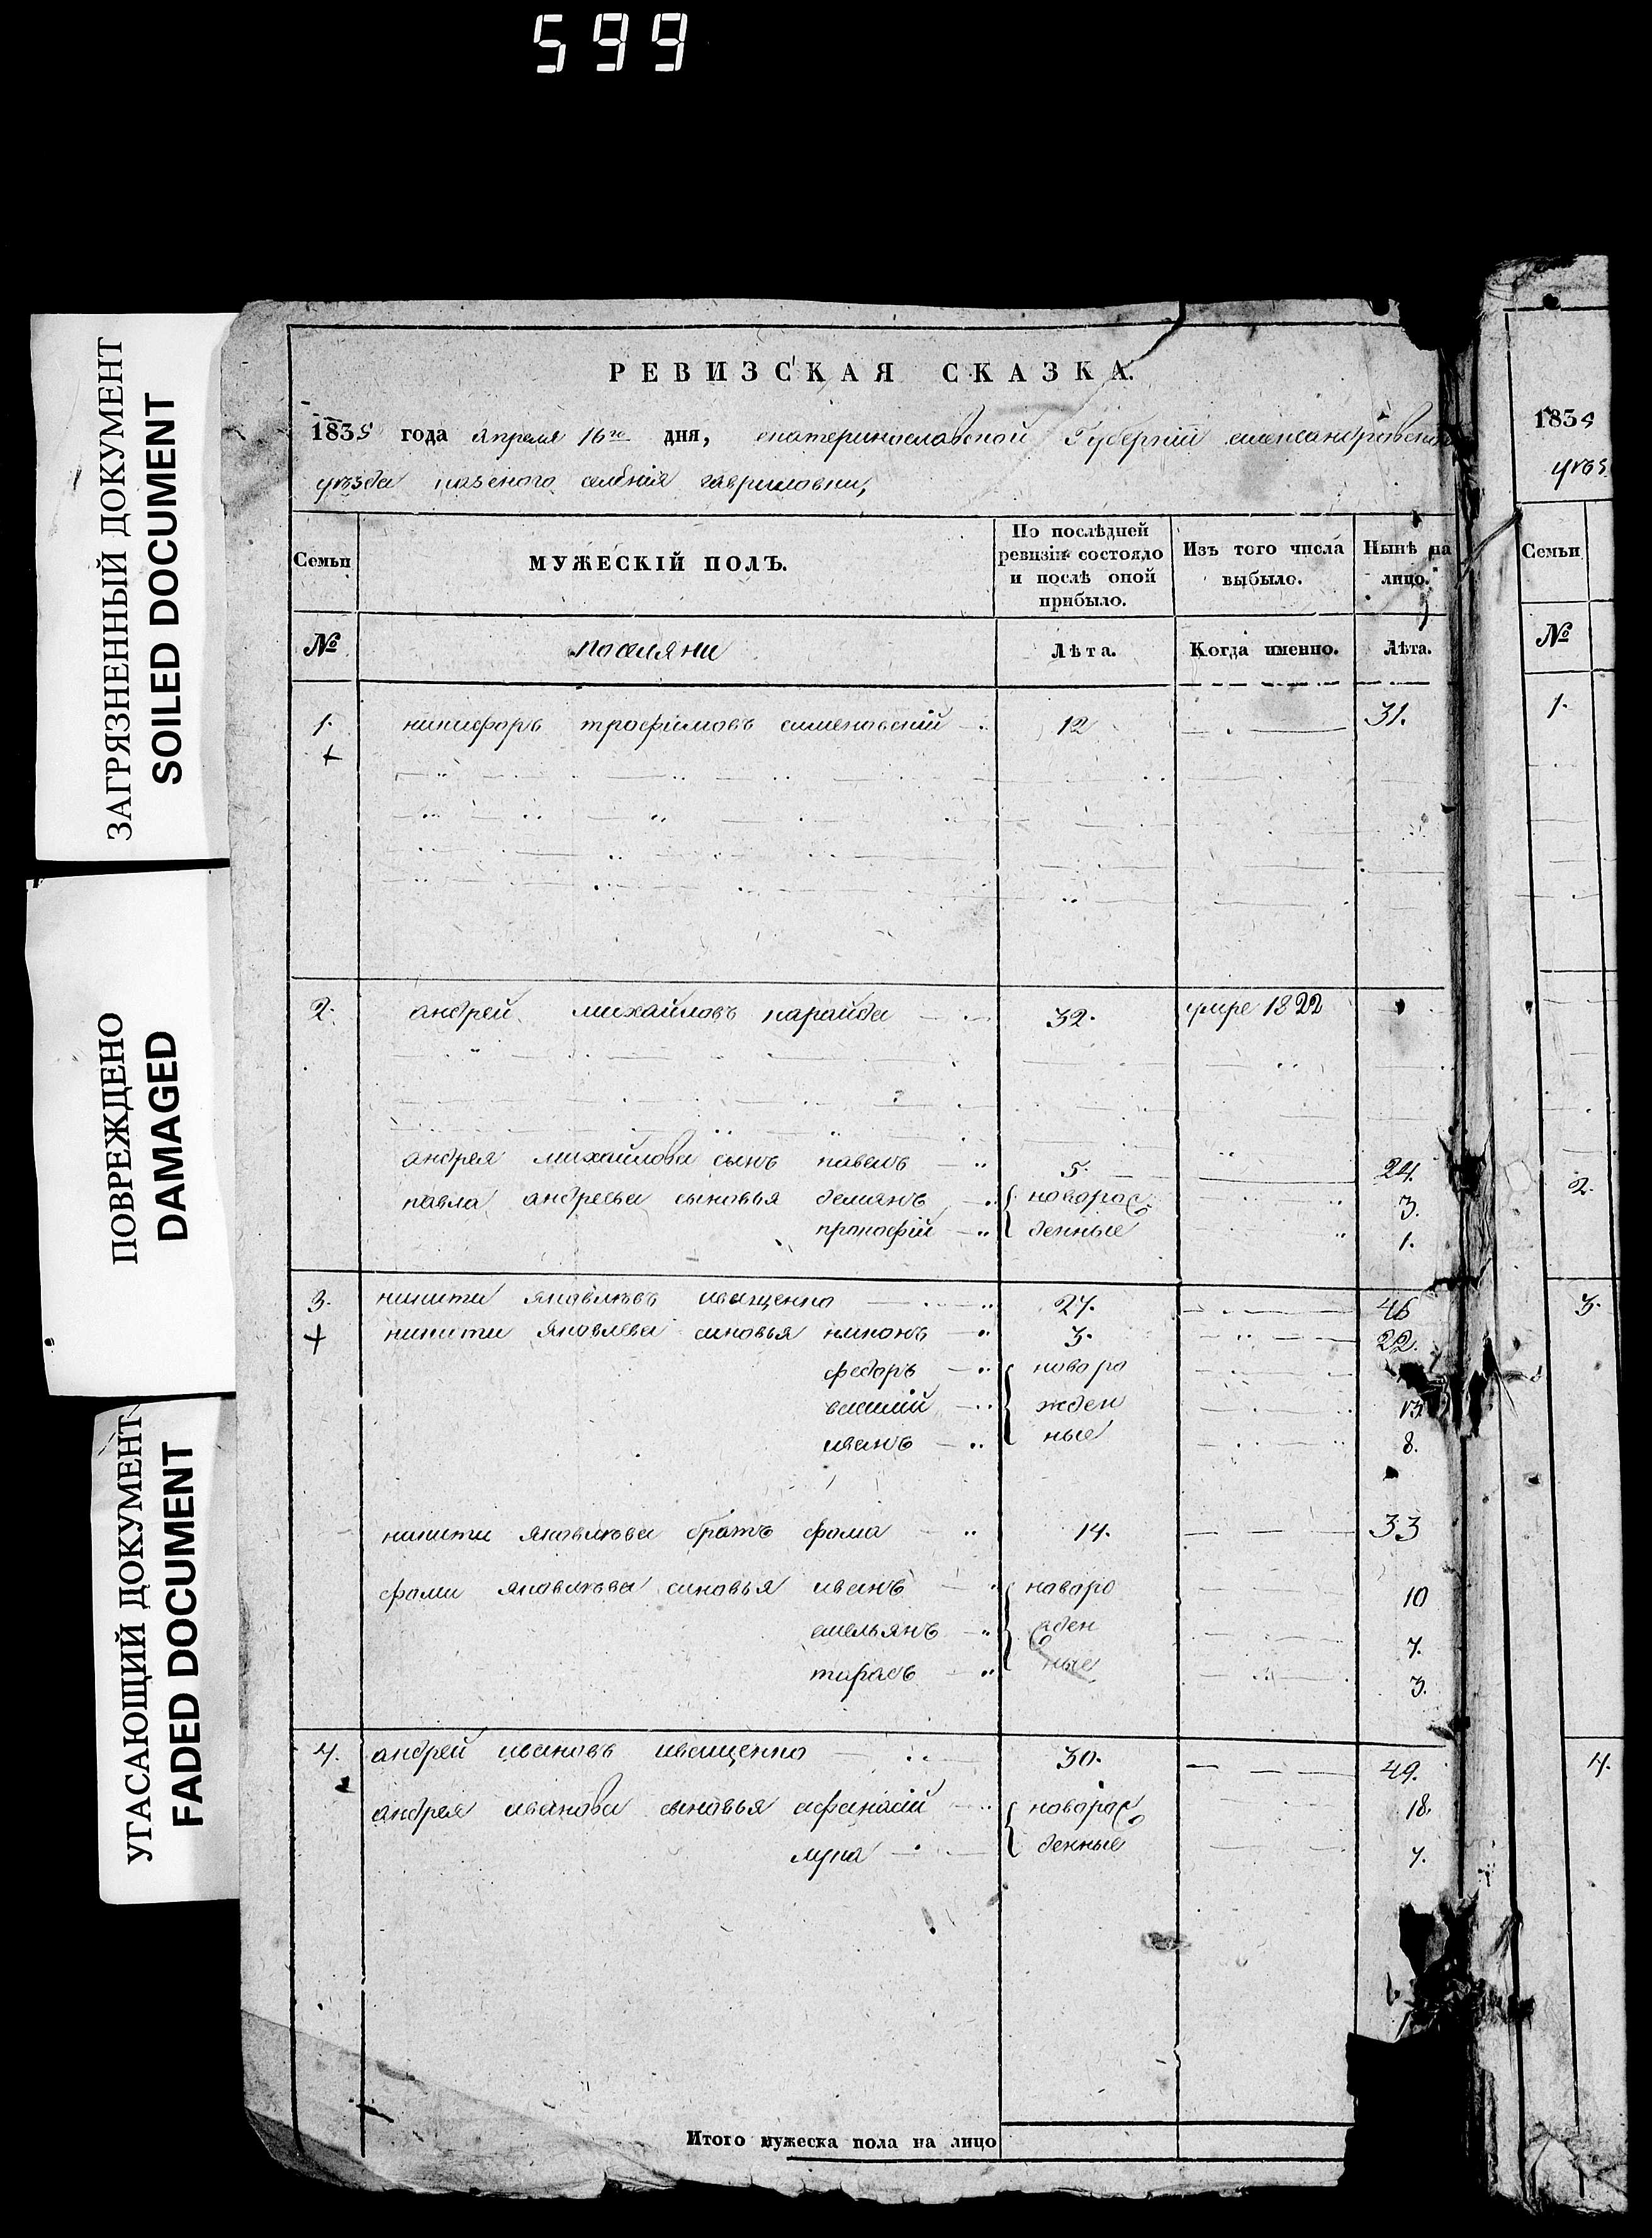 599
ЗАГРЯЗНЕННЫЙ ДОКУМЕНТ
SOILED DOCUMENT
ПОВРЕЖДЕНО
DAMAGED
УГАСАЮЩИЙ ДОКУМЕНТ
FADED DOCUMENT
РЕВИЗСКАЯ СКАЗКА.
1835 года апреля 16го дня, екатеринославской Губерніи александровскаго
уѣзда казеного селенія гавриловки,
Семьи МУЖЕСКІЙ ПОЛЪ. По послѣдней ревизіи состояло и послѣ оной прибыло. Изъ того числа выбыло. Нынѣ на лицо.
№ поселяни Лѣта. Когда именно. Лѣта.
1. никифоръ трофимовъ 12 31.
2. андрей михайловъ карайда 32. умре 1822
андрея михайлова сынъ павелъ 5. 24.
павла андреева сыновья демянъ новорож 3.
прокофій денные 1.
3. никита яковлевъ иващенко 27. 46
никити яковлева синовья никонъ 3. 22.
федоръ новоро
василій жден 13
иванъ ные 8.
никити яковлева братъ фома 14. 33
фоми яковлева синовья иванъ новоро 10
емельянъ жден 7.
тарасъ ные 3.
4. андрей ивановъ иващенко 30. 49.
андрея иванова сыновья афанасій новорож 18.
лука денные 7.
Итого мужеска пола на лицо
1835
уѣз
Семьи
№
1.
2.
3.
4.